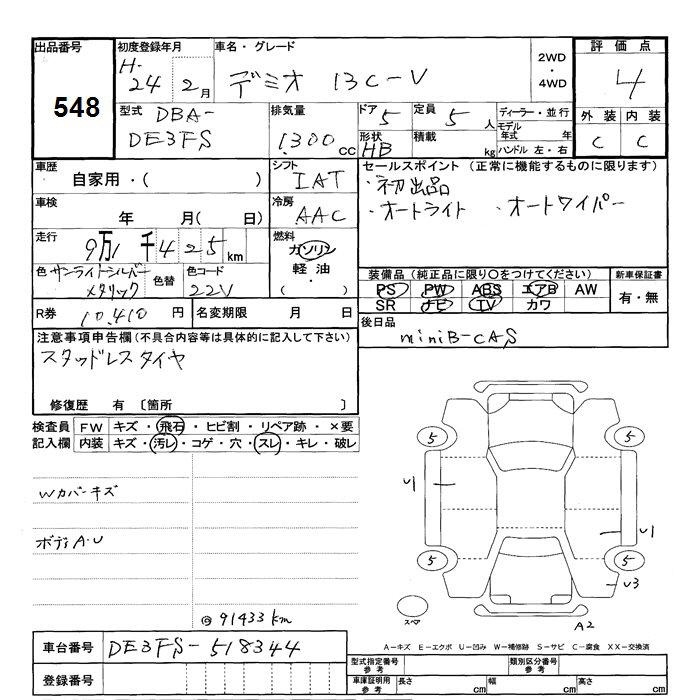 出品番号
548
初度登録年月
H-
24 2月
車名・グレード
デミオ 13C-V
2WD
・
4WD
評価点
4
型式 DBA-
DE3FS
排気量
1.300 cc
ドア 5
定員 5 人
形状 HB
積載 kg
ディーラー・並行
モデル
年式 年
ハンドル 左・右
外装 内装
C C
車歴
自家用・( )
シフト
IAT
セールスポイント (正常に機能するものに限ります)
・初出品
・オートライト ・オートワイパー
車検
年 月( 日)
冷房
AAC
走行
9万1千425 km
燃料
ガソリン
軽油
・( )
色 サンライトシルバー
メタリック
色替
色コード
22V
装備品 (純正品に限り○をつけてください)
PS PW ABS エアB AW
SR ナビ TV カワ
新車保証書
有・無
R券 10,410 円
名変期限 月 日
後日品
miniB-CAS
注意事項申告欄 (不具合内容等は具体的に記入して下さい)
スタッドレスタイヤ
修復歴 有 〔箇所 〕
検査員
記入欄
FW キズ・飛石・ヒビ割・リペア跡・×要
内装 キズ・汚レ・コゲ・穴・スレ・キレ・破レ
Wカバーキズ
ボディA・U
@ 91433km
5
5
U1
U1
5
5
U3
スペア
A2
A-キズ E-エクボ U-凹み W-補修跡 S-サビ C-腐食 XX-交換済
車台番号 DE3FS-518344
登録番号
型式指定番号
参考
類別区分番号
参考
車庫証明用
参考
長さ cm
幅 cm
高さ cm